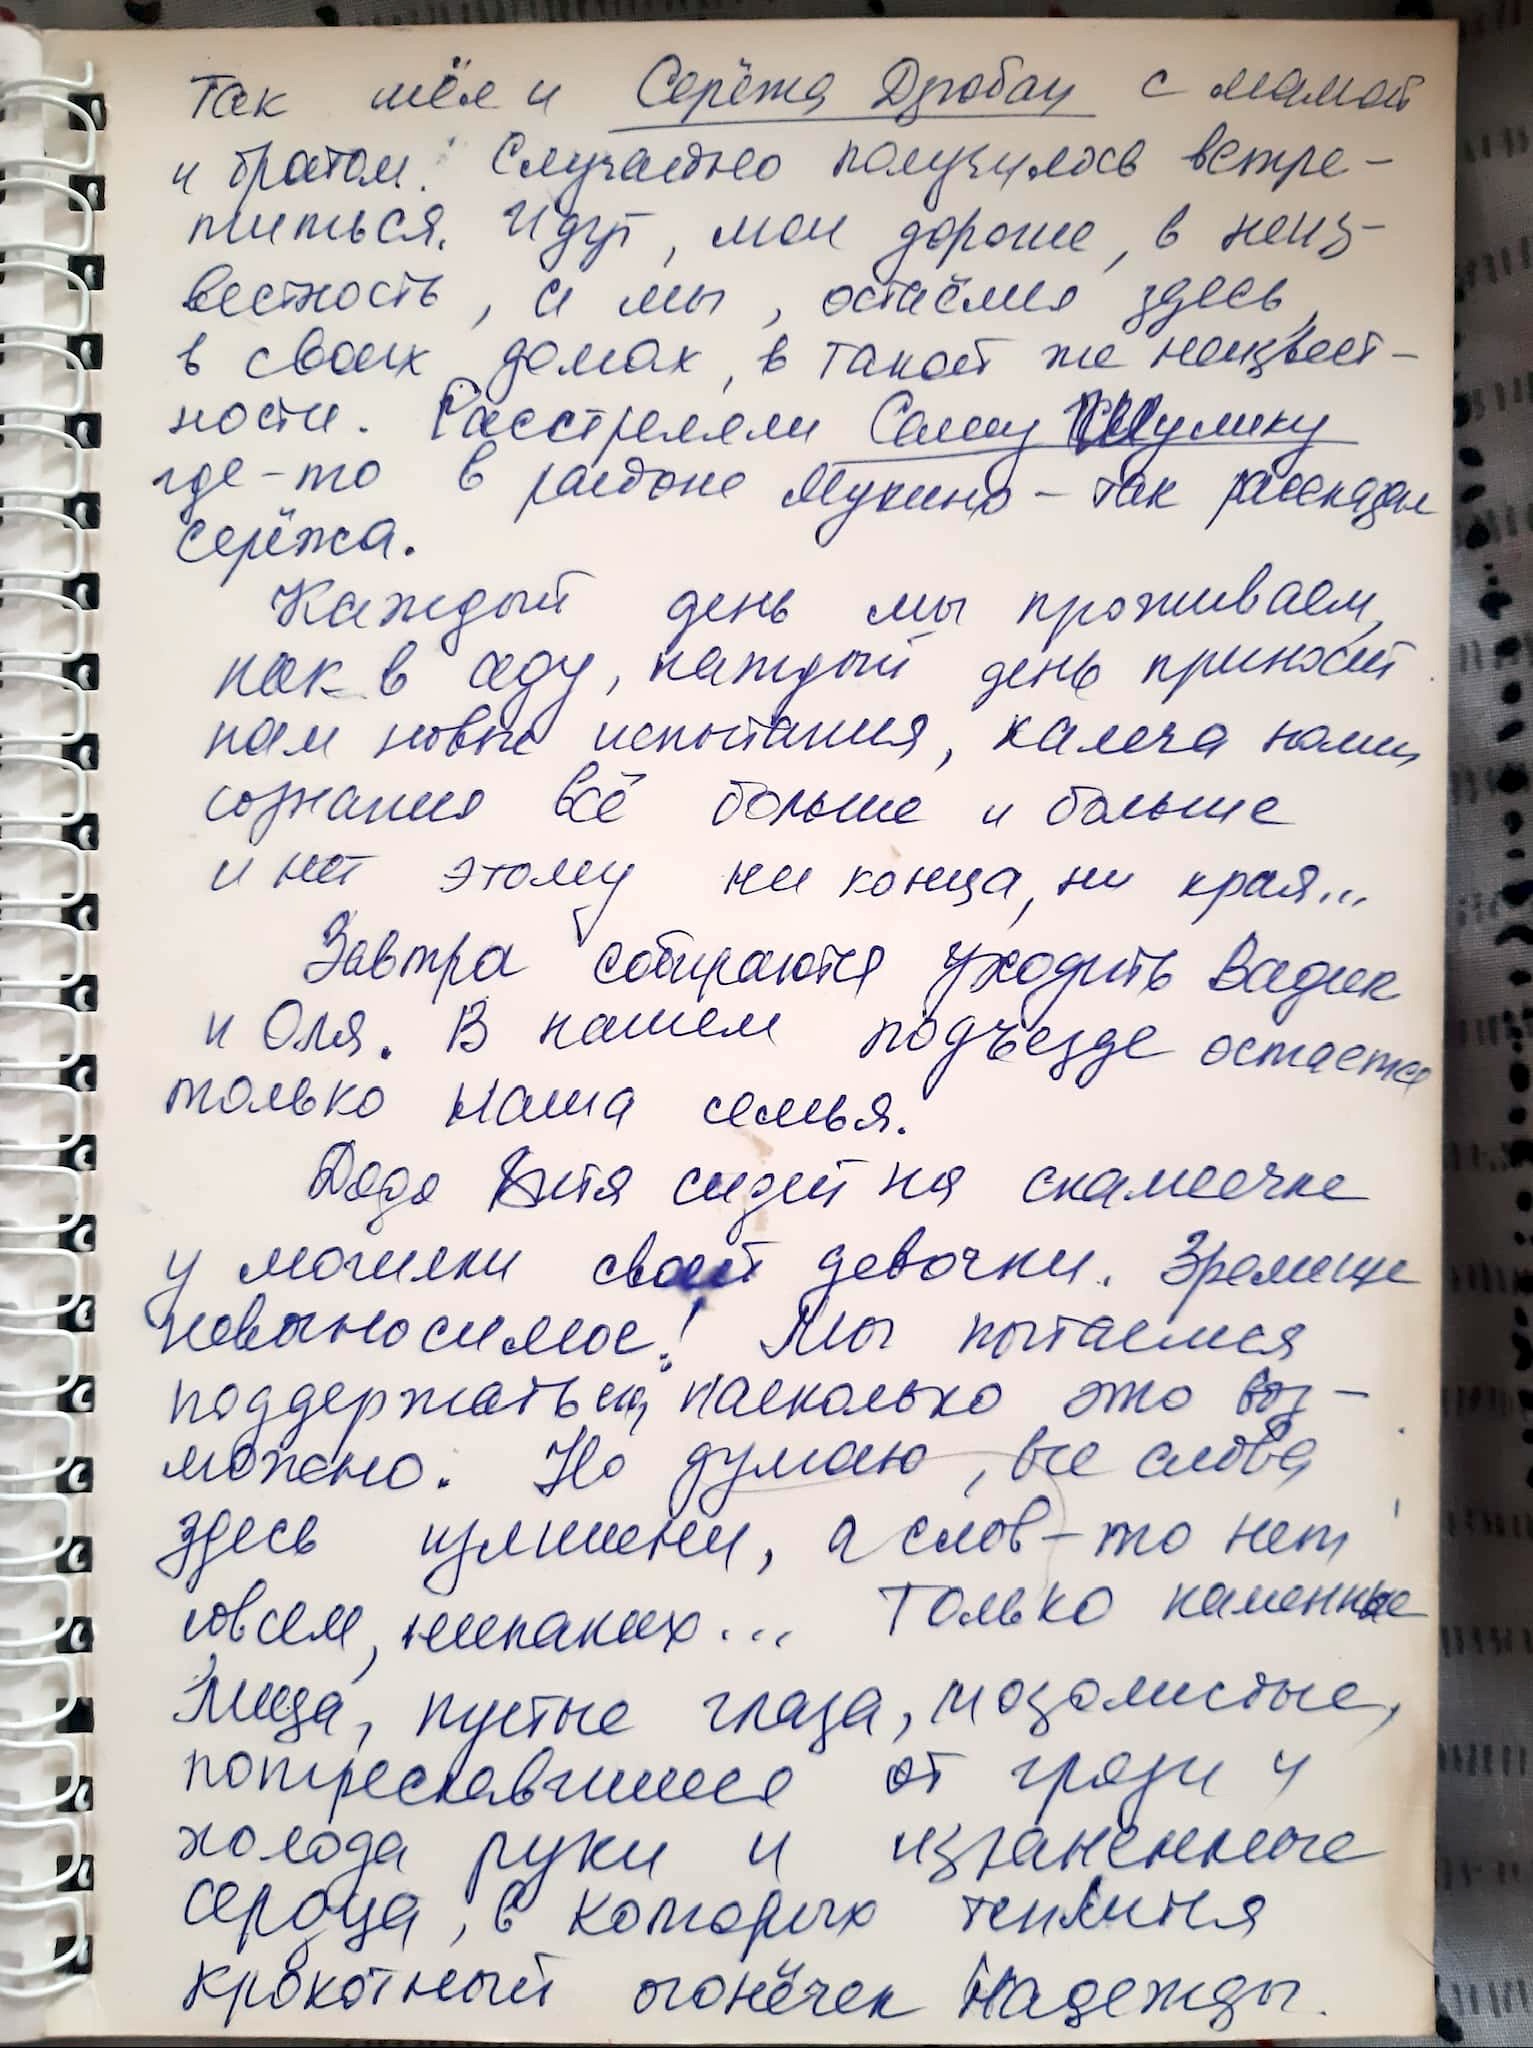 Так шёл и Серёжа Дзюбан с мамой
и братом. Случайно получилось встре-
титься. Идут, мои дорогие, в неиз-
вестность, а мы, остаёмся здесь,
в своих домах, в такой же неизвест-
ности. Расстреляли Сашу Шулику
где-то в районе Мукино - так рассказал
Серёжа.
Каждый день мы проживаем,
как в аду, каждый день приносит
нам новые испытания, калеча наши
сознания всё больше и больше
и нет этому ни конца, ни края...
Завтра собираются уходить Вадик
и Оля. В нашем подъезде остаётся
только наша семья.
Дядя Витя сидит на скамеечке
у могилки своей девочки. Зрелище
невыносимое! Мы пытаемся
поддержать его, насколько это воз-
можно. Но думаю, все слова
здесь излишни, а слов-то нет
совсем, никаких... Только каменные
лица, пустые глаза, мозолистые,
потрескавшиеся от грязи и
холода руки и израненные
сердца, в которых теплится
крохотный огонёчек Надежды.